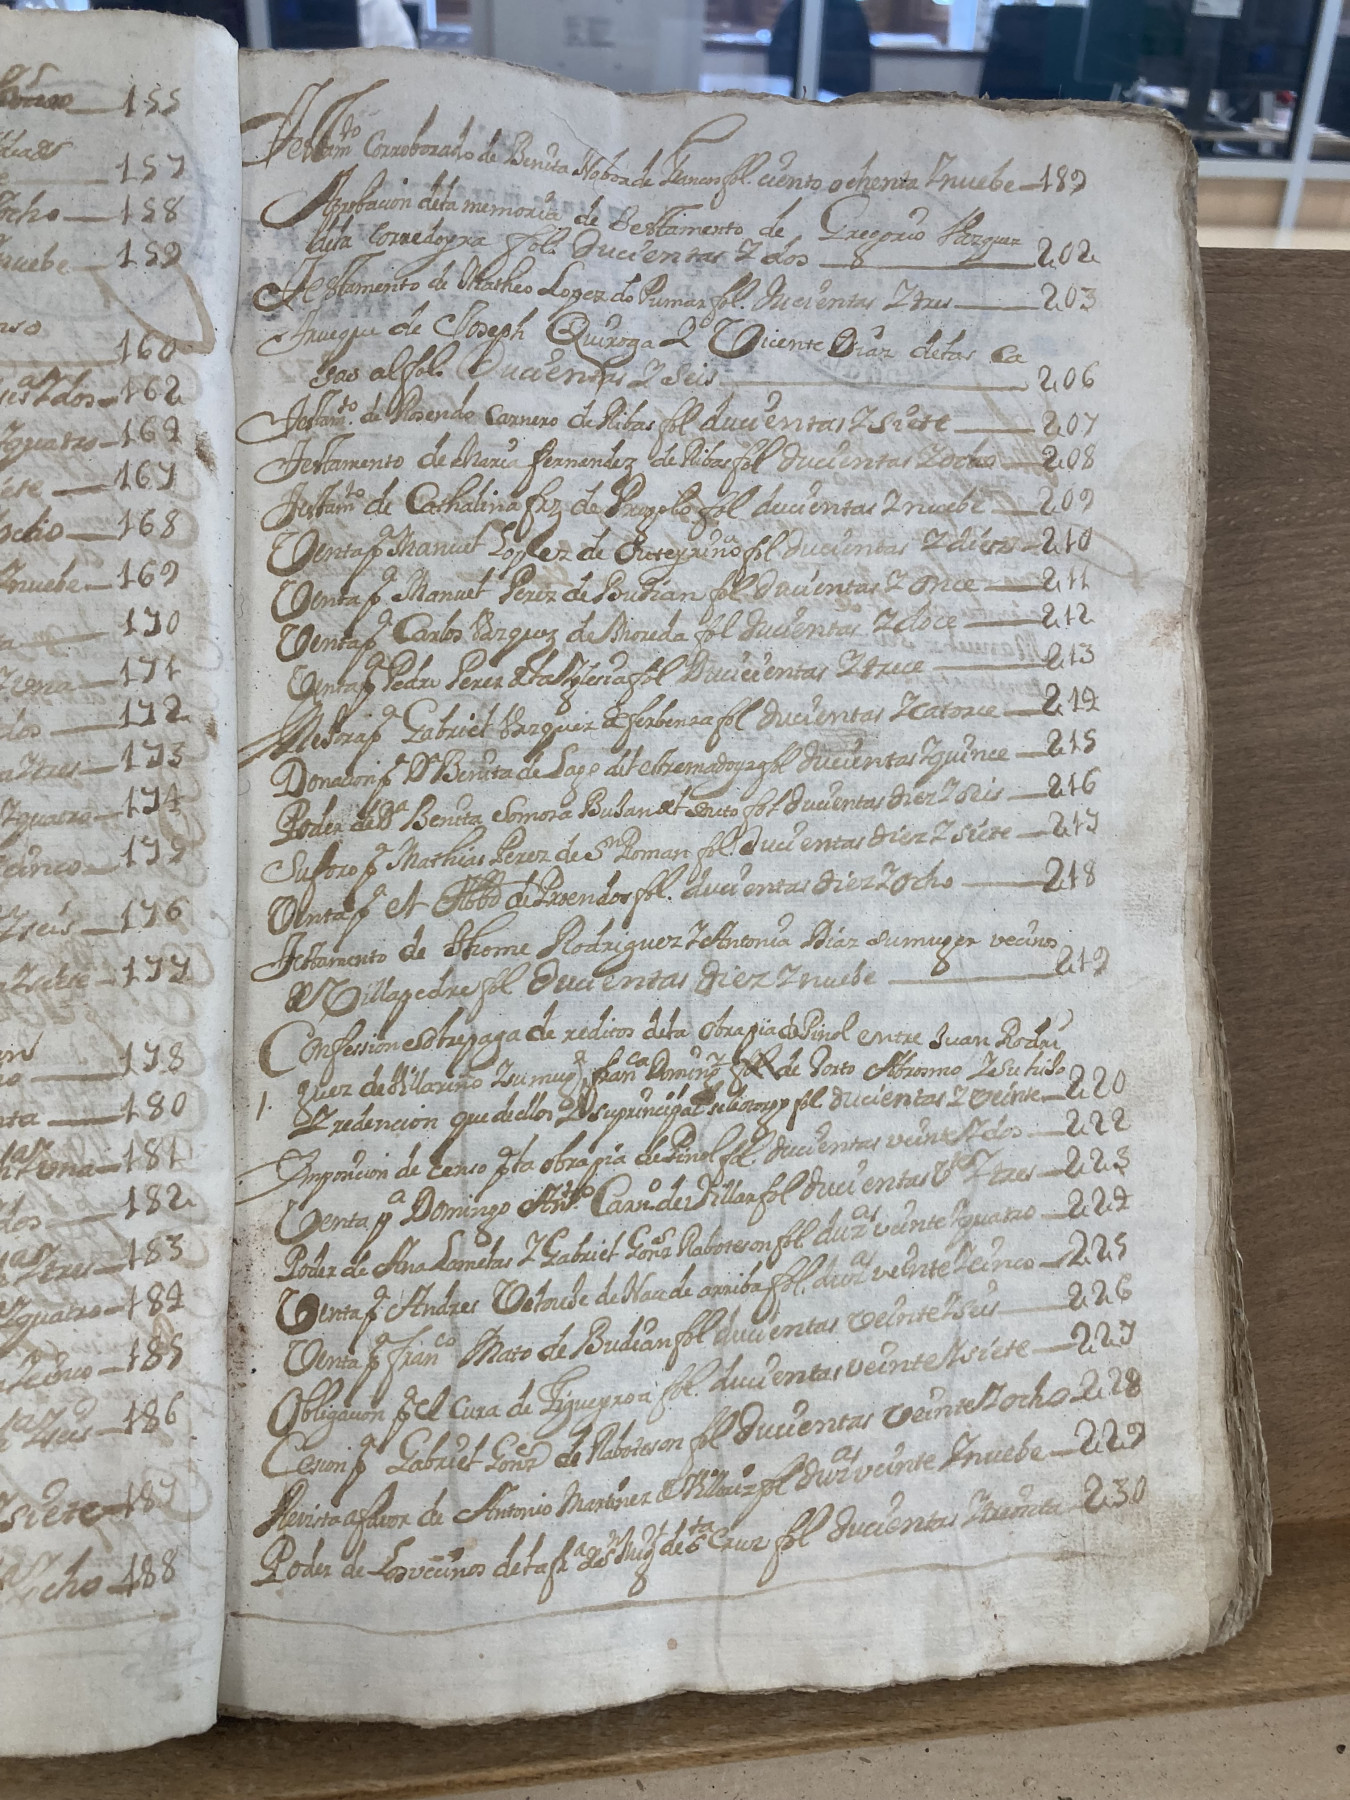 155
157
ocho 158
nuebe 159
160
y dos 162
y quatro 164
siete 167
ocho 168
y nuebe 169
170
y una 171
dos 172
y tres 173
y quatro 174
y cinco 175
y seis 176
y siete 177
178
180
y una 181
dos 182
y tres 183
y quatro 184
y cinco 185
y seis 186
y siete 187
ocho 188
Testamto Corroborado de Benita fol. ciento ochenta y nuebe 189
Aprobacion de la memoria de Testamento de Gregorio Vazquez
de la Corredoyra fol. Ducientas y dos 202
Testamento de Matheo Lopez do Pumar fol. ducientas y tres 203
Trueque de Joseph Quiroga y Vicente Diaz de las Ca
sas al fol. Ducientas y seis 206
Testamto de Rosendo Carnero de Ribas fol ducientas y siete 207
Testamento de Maria Fernandez de Ribas fol ducientas y ocho 208
Testamto de Cathalina frz de fol ducientas y nuebe 209
Venta pa Manuel Lopez de Outeyriño fol ducientas y diez 210
Venta pa Manuel Perez de Budian fol ducientas y once 211
Venta pa Carlos Vazquez de Moreda fol ducientas y doce 212
Venta pa Pedro Perez de la Yglesia fol Ducientas y trece 213
Mejora pa Gabriel Vazquez de ferbenza fol ducientas y catorce 214
Donacion pa Da Benita de Lago del estremadoyro fol ducientas y quince 215
Poder de Da Benita Somoza fol ducientas diez y seis 216
Suforo pa Mathias Perez de Sn Roman fol. ducientas diez y siete 217
Venta pa el Abbd de Proendos fol. ducientas diez y ocho 218
Testamento de Thome Rodriguez y Antonia Diaz su muger vecinos
de Villapedre fol ducientas diez y nuebe 219
Confession sobre paga de reditos de la obra pia de Piñol entre Juan Rodri
guez de Villariño y su mugr franca Doming fol. de Porto y su hijo
y redencion que de ellos y su principal se fol. ducientas y veinte 220
Ymposicion de censo pa la obra pia de Piñol fol. ducientas veinte y dos 222
Venta pa Domingo Anto Carno de Villar fol ducientas vte y tres 223
Poder de Ana Lamelas y Gabriel Gonz Raboteson fol. ducas veinte y quatro 224
Venta pa Andres de arriba fol. ducas veinte y cinco 225
Venta pa franco Mato de Budian fol ducientas veinte y seis 226
Obligacion pa el Cura de Figueyroa fol. ducientas veinte y siete 227
Cesion pa Gabriel Gonz de Raboteson fol Ducientas veinte y ocho 228
Revista a fabor de Antonio Martinez de fol ducas veinte y nuebe 229
Poder de Los vecinos de la fra de Sn Migl de sta Cruz fol ducientas y treinta 230